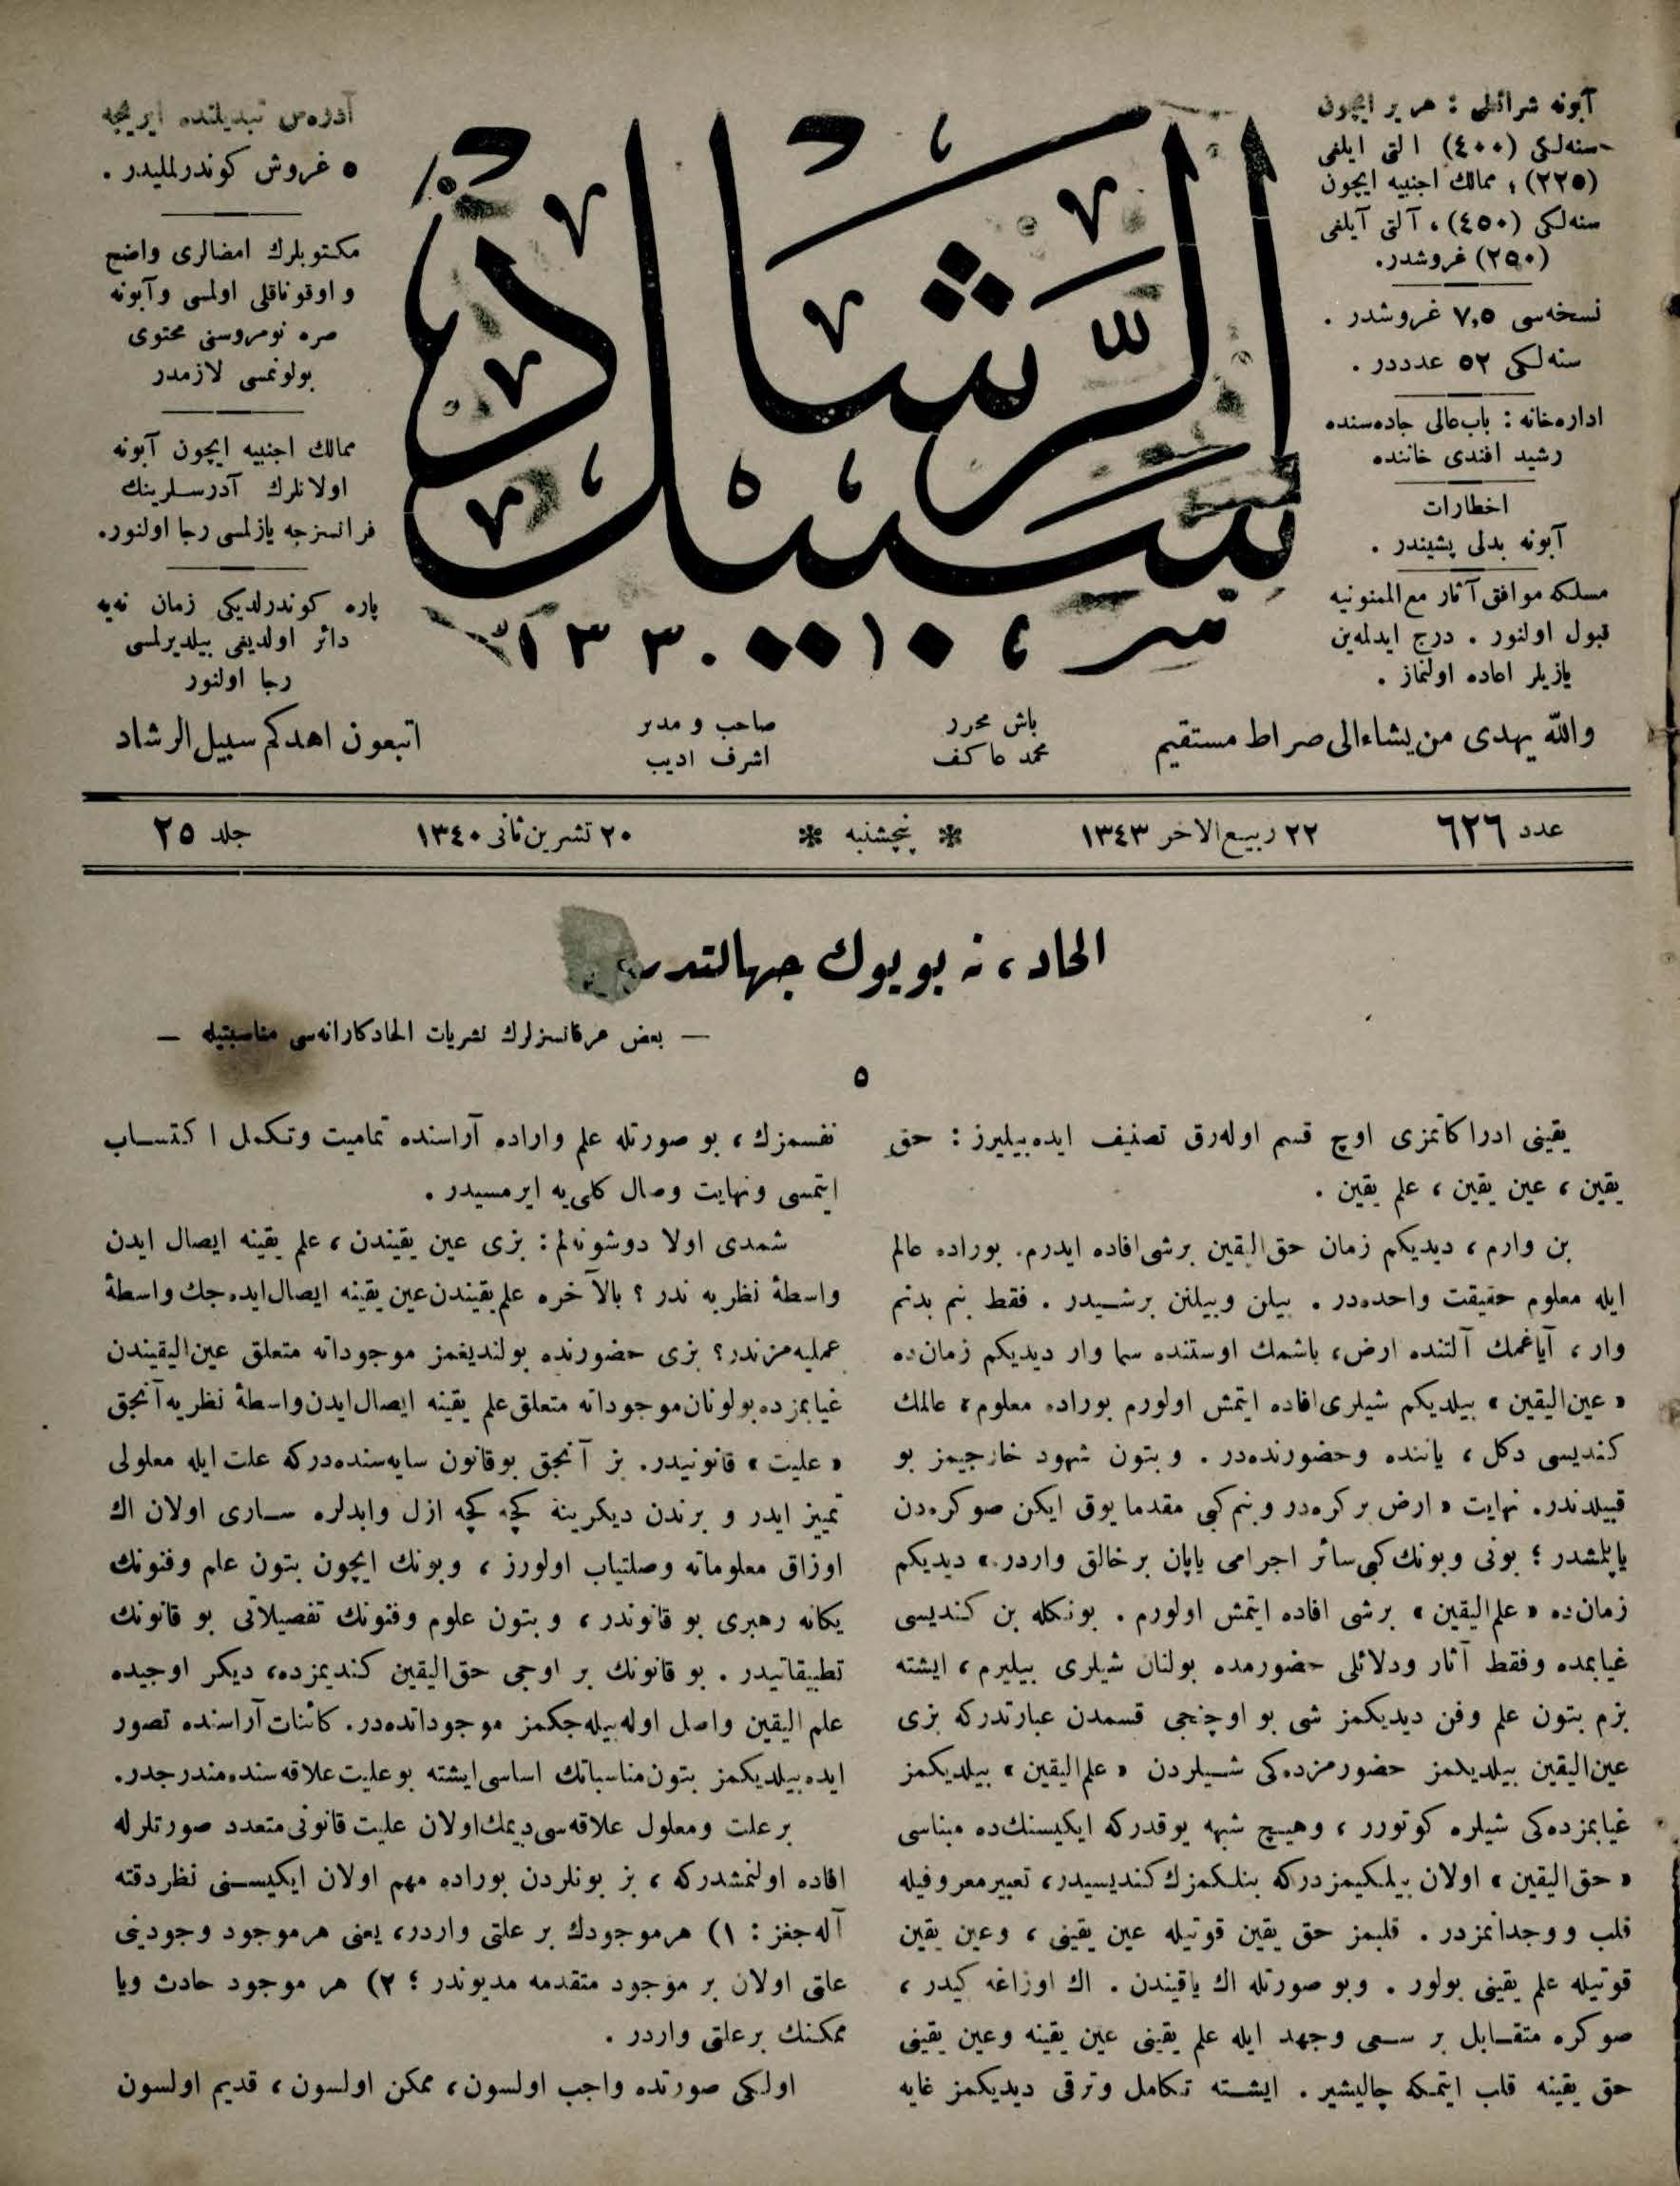 آبونه شرائطی : هر یر ایچون
سنه‌لكی (٤٠٠) التی ایلغی
(٢٢٥) ؛ ممالك اجنبیه ایچون
سنه‌لكی (٤٥٠) ، آلتی آیلغی
(٢٥٠) غروشدر.
نسخه‌سی ٧,٥ غروشدر .
سنه‌لكی ٥٢ عدددر .
اداره‌خانه : باب‌عالی جاده‌سنده
رشید افندی خاننده
اخطارات
آبونه بدلی پشیندر .
مسلكه موافق آثار مع‌الممنونیه
قبول اولنور . درج ایدلمه‌ین
یازیلر اعاده اولنماز .
سبیل الرشاد
آدره‌س تبدیلنده ایریجه
٥ غروش كوندرلملیدر .
مكتوبلرك امضالری واضح
و اوقوناقلی اولمسی وآبونه
صره نومروسنی محتوی
بولونمسی لازمدر
ممالك اجنبیه ایچون آبونه
اولانلرك آدرسلرینك
فرانسزجه یازلمسی رجا اولنور.
پاره كوندرلدیكی زمان نه‌یه
دائر اولدیغی بیلدیرلمسی
رجا اولنور
والله یهدی من یشاء الی صراط مستقیم
باش محرر
محمد عاكف
صاحب و مدیر
اشرف ادیب
اتبعون اهدكم سبیل الرشاد
عدد ٦٢٦
٢٢ ربیع‌الاخر ١٣٤٣
❊ پنجشنبه ❊
٢٠ تشرین ثانی ١٣٤٠
جلد ٢٥
الحاد ، نه بویوك جهالتدر
— بعض عرفانسزلرك نشریات الحادكارانه‌سی مناسبتیله —
٥
یقینی ادراكاتمزی اوچ قسم اوله‌رق تصنیف ایده‌بیلیرز : حق
یقین ، عین یقین ، علم یقین .
بن وارم ، دیدیكم زمان حق‌الیقین برشی افاده ایدرم. بوراده عالم
ایله معلوم حقیقت واحده‌در . بیلن وبیلنن برشیدر . فقط بنم بدنم
وار ، آیاغمك آلتنده ارض ، باشمك اوستنده سما وار دیدیكم زمان‌ده
« عین‌الیقین » بیلدیكم شیلری افاده ایتمش اولورم بوراده معلوم ، عالمك
كندیسی دكل ، یاننده وحضورنده‌در . وبتون شهود خارجیمز بو
قبیلدندر. نهایت « ارض بر كره‌در وبنم كبی مقدما یوق ایكن صوكره‌دن
یاپلمشدر ؛ بونی وبونك كبی سائر اجرامی یاپان برخالق واردر.» دیدیكم
زمان‌ده « علم‌الیقین » برشی افاده ایتمش اولورم . بونكله بن كندیسی
غیابمده وفقط آثار ودلائلی حضورمده بولنان شیلری بیلیرم ، ایشته
بزم بتون علم وفن دیدیكمز شی بو اوچنجی قسمدن عبارتدركه بزی
عین‌الیقین بیلدیكمز حضورمزده‌كی شیلردن « علم‌الیقین » بیلدیكمز
غیابمزده‌كی شیلره كوتورر ، وهیچ شبهه یوقدركه ایكیسنك‌ده مبناسی
« حق‌الیقین » اولان بیلكیمزدركه بنلكمزك كندیسیدر، تعبیر معروفیله
قلب ووجدانمزدر . قلبمز حق یقین قوتیله عین یقینی ، وعین یقین
قوتیله علم یقینی بولور . وبو صورتله اك یاقیندن . اك اوزاغه كیدر ،
صوكره متقابل بر سعی وجهد ایله علم یقینی عین یقینه وعین یقینی
حق یقینه قلب ایتمكه چالیشیر . ایشته تكامل وترقی دیدیكمز غایه
نفسمزك ، بو صورتله علم واراده آراسنده تمامیت وتكمل اكتساب
ایتمسی ونهایت وصال كلی‌یه ایرمسیدر .
شمدی اولا دوشونه‌لم : بزی عین یقیندن ، علم یقینه ایصال ایدن
واسطهٔ نظریه ندر ؟ بالآخره علم‌یقیندن عین یقینه ایصال ایده‌جك واسطهٔ
عملیه‌مز ندر؟ بزی حضورنده بولندیغمز موجوداته متعلق عین‌الیقیندن
غیابمزده بولونان موجوداته متعلق علم یقینه ایصال ایدن واسطهٔ نظریه آنجق
« علیت » قانونیدر. بز آنجق بوقانون سایه‌سنده‌دركه علت ایله معلولی
تمییز ایدر و برندن دیكرینه كچه كچه ازل وابدلره ساری اولان اك
اوزاق معلوماته وصلتیاب اولورز ، وبونك ایچون بتون علم وفنونك
یكانه رهبری بو قانوندر ، وبتون علوم وفنونك تفصیلاتی بو قانونك
تطبیقاتیدر . بو قانونك بر اوجی حق‌الیقین كندیمزده، دیكر اوجیده
علم الیقین واصل اوله‌بیله‌جكمز موجوداتده‌در. كائنات آراسنده تصور
ایده‌بیلدیكمز بتون مناسباتك اساسی ایشته بو علیت علاقه‌سنده مندرجدر.
بر علت ومعلول علاقه‌سی دیمك اولان علیت قانونی متعدد صورتلرله
افاده اولنمشدركه ، بز بونلردن بوراده مهم اولان ایكیسنی نظر دقته
آله‌جغز : ١) هرموجودك بر علتی واردر، یعنی هرموجود وجودینی
علتی اولان بر موجود متقدمه مدیوندر ؛ ٢) هر موجود حادث ویا
ممكنك برعلتی واردر .
اولكی صورتده واجب اولسون ، ممكن اولسون ، قدیم اولسون